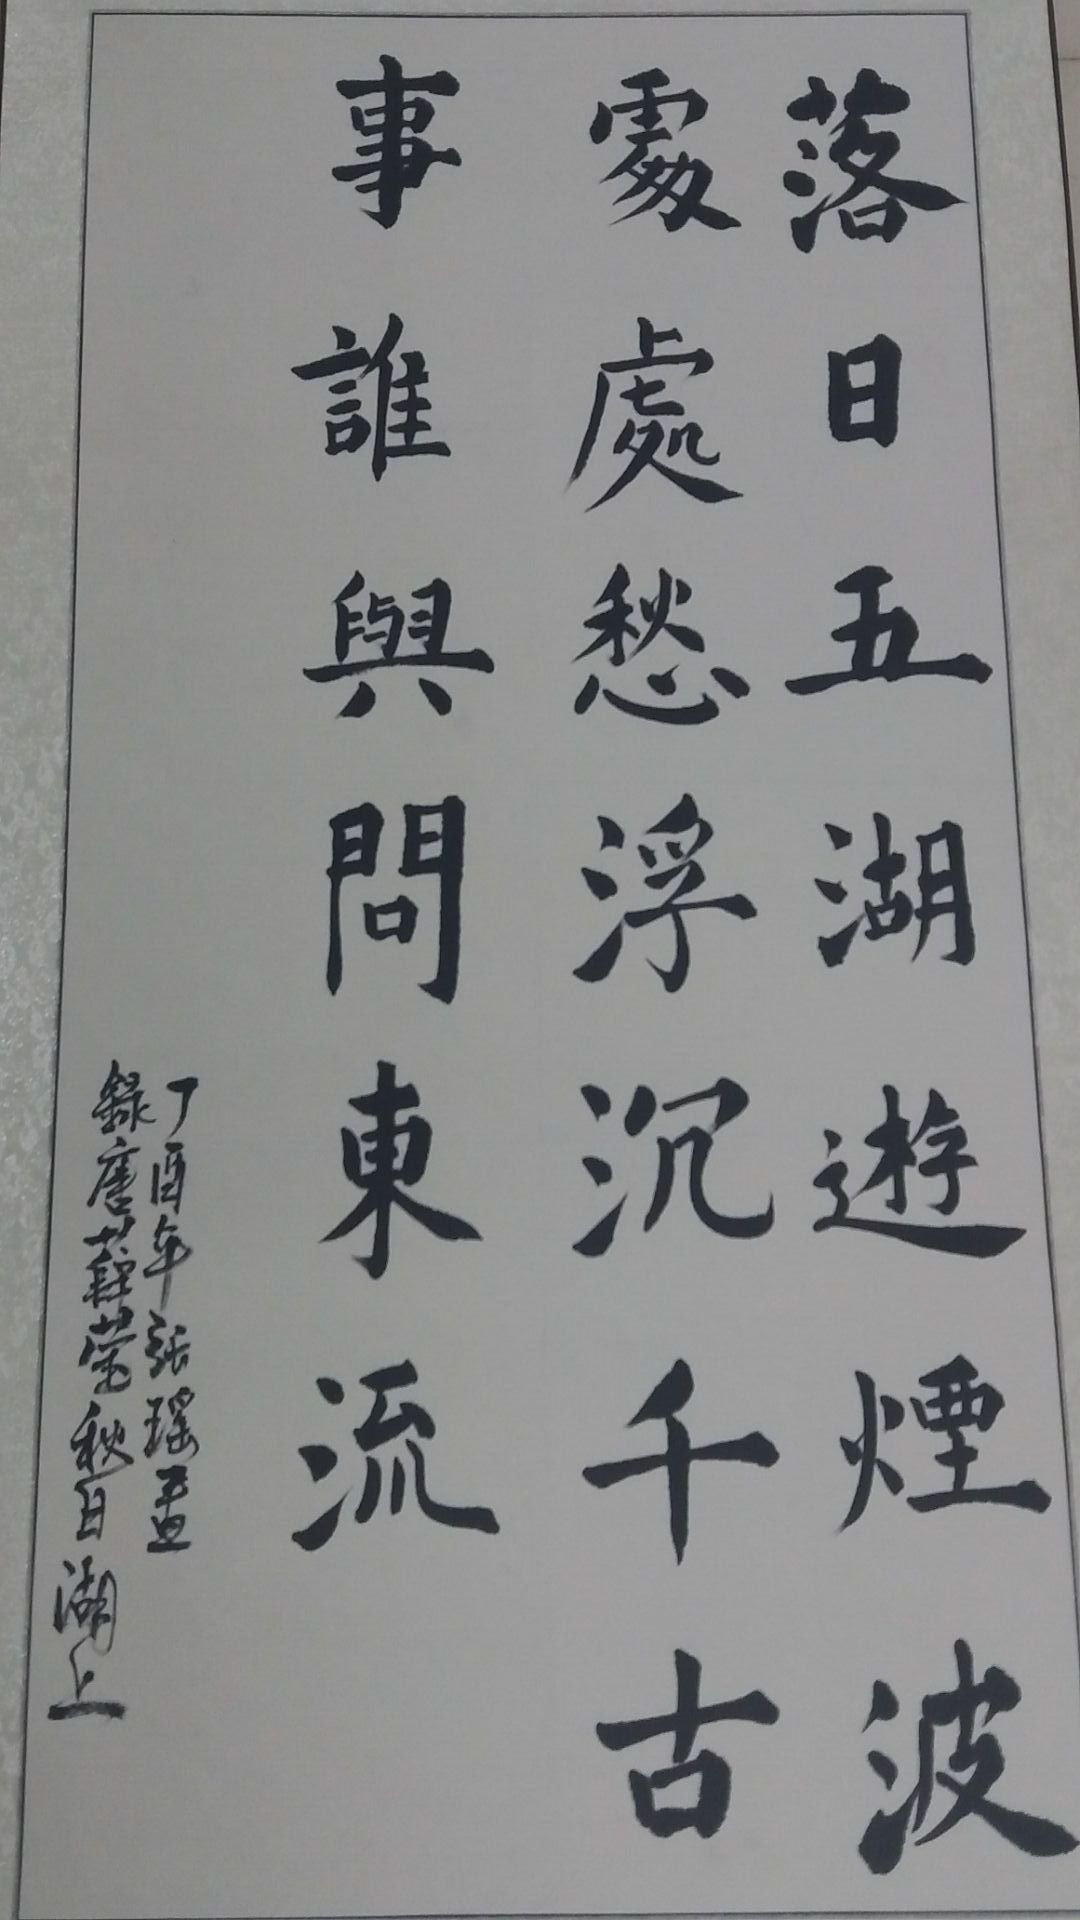 落日五湖遊煙波
處處愁浮沉千古
事誰與問東流
丁酉年張瑤
錄唐薛瑩秋日湖上